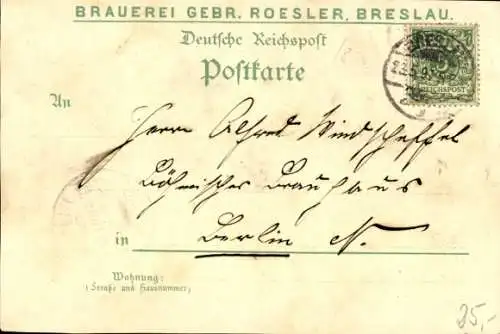 BRAUEREI GEBR. ROESLER, BRESLAU.
Deutsche Reichspost
Postkarte
BRESLAU
REICHSPOST
An
Herrn Alfred Windscheffel
Böhmisches Brauhaus
in Berlin N.
Wohnung:
(Straße und Hausnummer)
25,-